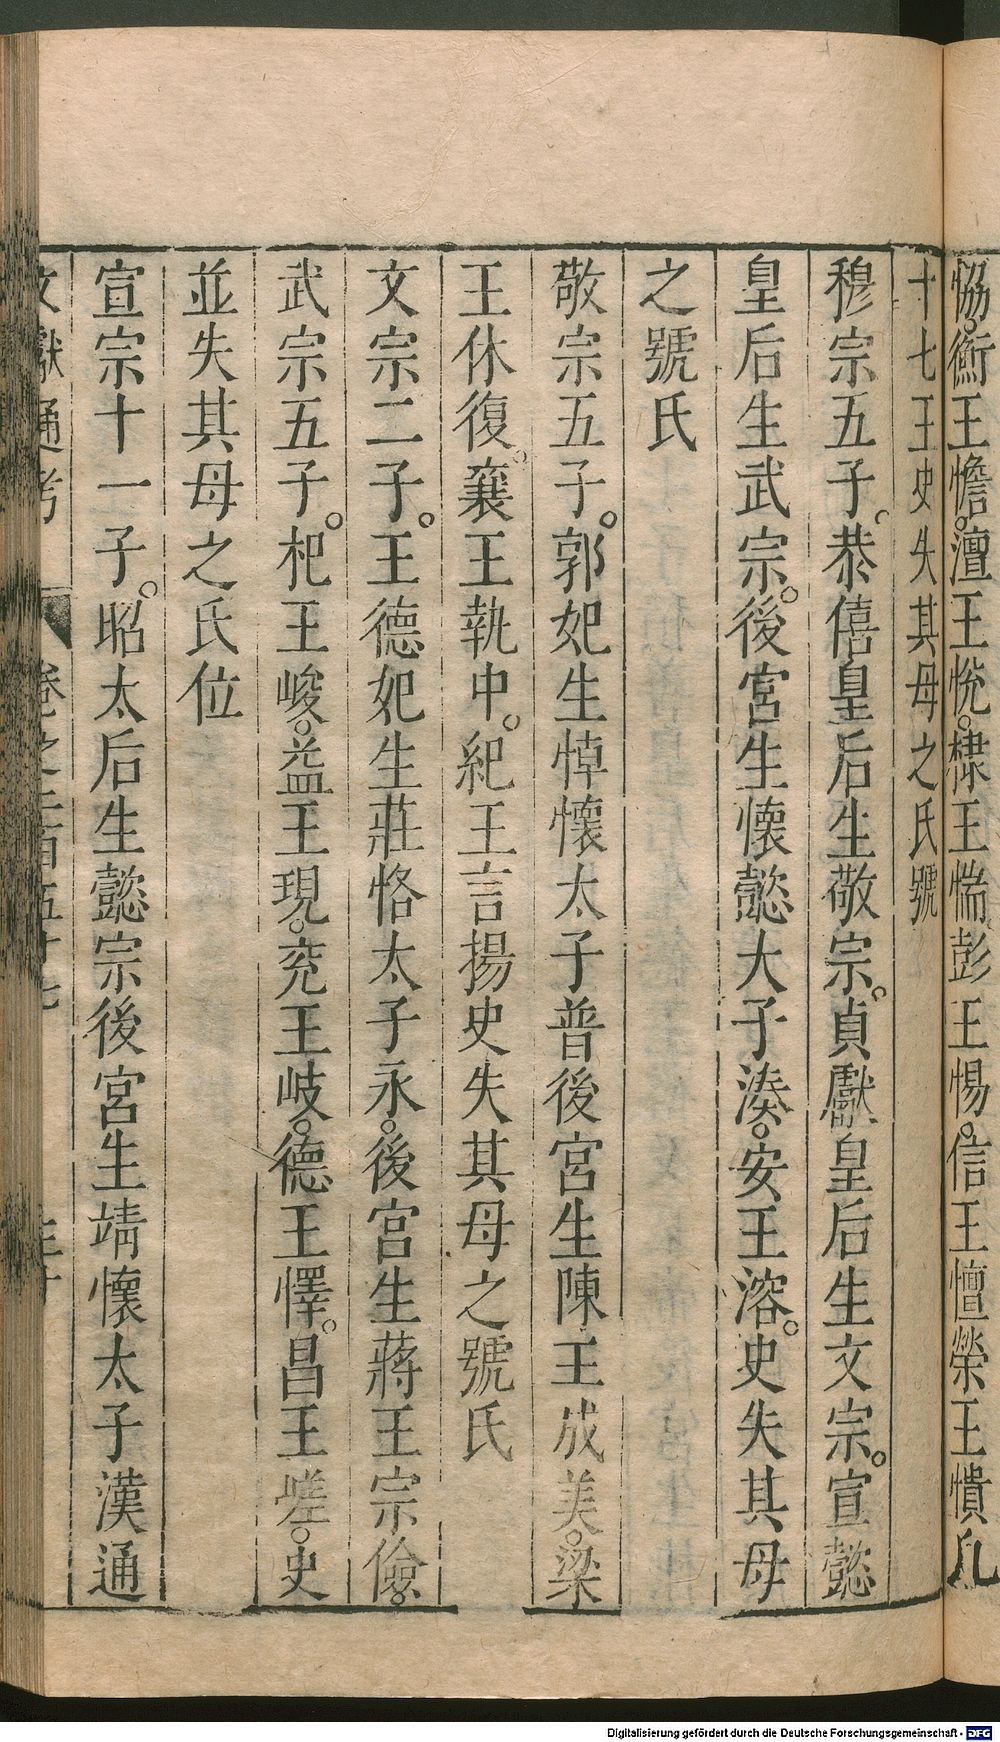 恊。衡王憺。澶王㤞。棣王惴彭王惕。信王憻榮王憒凡
十七王史失其母之氏號
穆宗五子。恭僖皇后生敬宗。貞獻皇后生文宗。宣懿
皇后生武宗。後宮生懷懿大子湊。安王溶。史失其母
之號氏
敬宗五子。郭妃生悼懷太子普後宮生陳王成美。梁
王休復。襄王執中。紀王言揚史失其母之號氏
文宗二子。王德妃生莊恪太子永。後宮生蔣王宗儉。
武宗五子。杞王峻。益王現。兖王岐。德王懌。昌王嵯。史
並失其母之氏位
宣宗十一子。昭太后生懿宗後宮生靖懷太子漢通
文獻通考 卷之二百五十七 三十
Digitalisierung gefördert durch die Deutsche Forschungsgemeinschaft - DFG